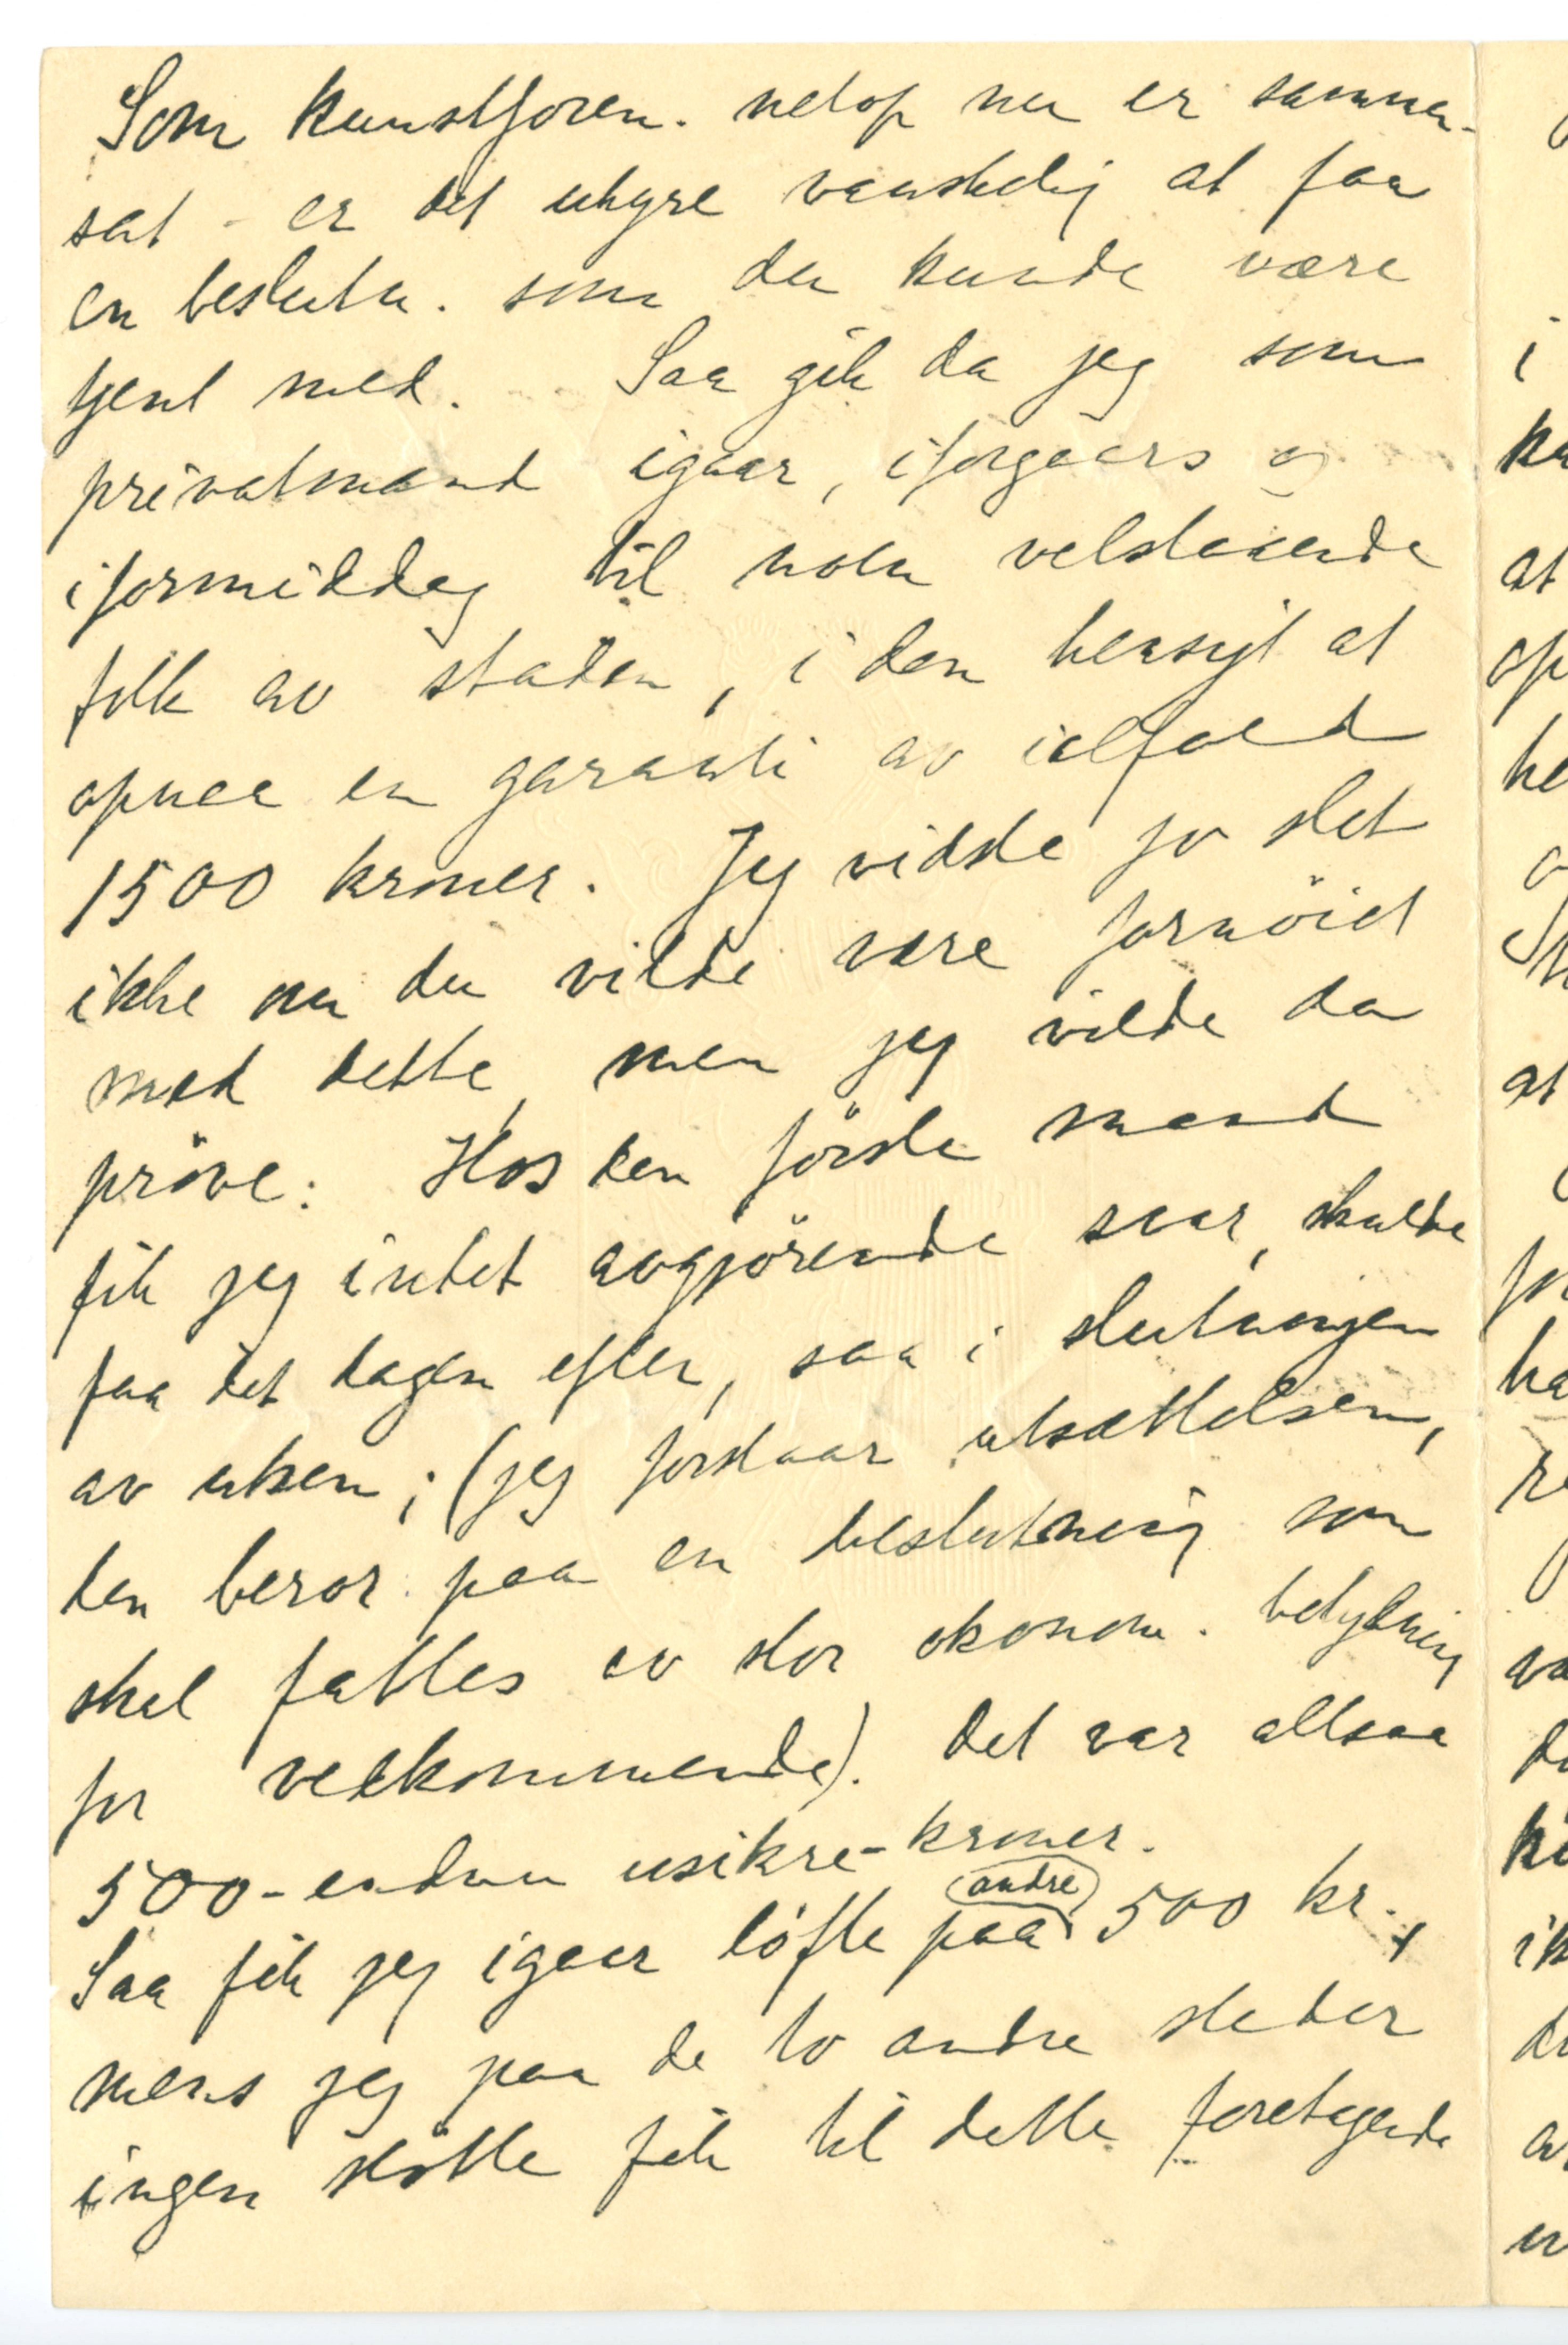 Som kunstforen. netop nu er sammen-
sat - er det uhyre vanskelig at faa
en beslutn. som du kunde være
tjent med. Saa gik da jeg som
privatmand igaar, iforgaars og
iformiddag til nolen velstaaende
folk av staden, i den hensigt at
opnaa en garanti av ialfald
1500 kroner. Jeg vidste jo slet
ikke om du vilde være fornöiet
med dette, men jeg vilde da
pröve: Hos den förste mand
fik jeg intet avgjörende svar, skulde
faa det dagen efter, saa i slutningen
av uken; (jeg forstaar utsættelsen,
den beror paa en beslutning som
skal fattes av stor økonom. betydning
for vedkommende). Det var altsaa
500 - endnu usikre - kroner.
Saa fik jeg igaar löfte paa andre 500 kr.,
mens jeg paa de to andre steder
ingen stötte fik til dette foretagende
i
at
op
he
at
ha